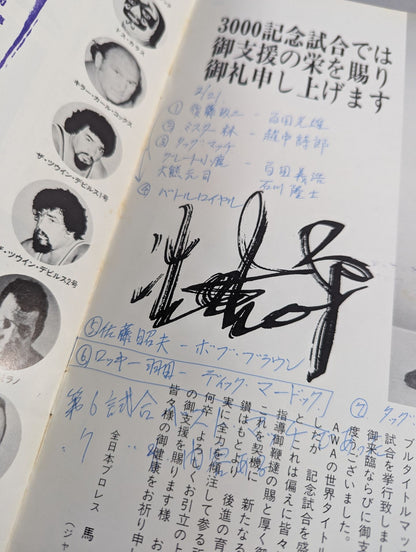 3000記念試合では
御支援の栄を賜り
御礼申し上げます
ス・カラス
キラー・カール・コックス
ザ・ツウイン・デビルス1号
ザ・ツウイン・デビルス2号
ラノ
2/21
① 後藤政二 - 百田光雄
② ミスター林 - 越中詩郎
③ タッグ・マッチ
グレート小鹿 - 百田義浩
大熊元司 石川隆士
④ バトルロイヤル
⑤ 佐藤昭夫 - ボブ・ブラウン
⑥ ロッキー羽田 - ディック・マードック
⑦ タッグ・
第6試合
ャルタイトルマッ
試合を挙行致しまし
御来場ならびに御支
度うございました。
AWAの世界タイト
したが 記念試合を盛
指導御鞭撻の賜と厚く
れを契機に 新たなる
鑚はもとより 後進の育
実に全力を傾注して参る所
何卒 よろしくお引立の上
の御支援を賜ります様 お
皆々様の御健康をお祈り申し
全日本プロレス 馬
(ジャ